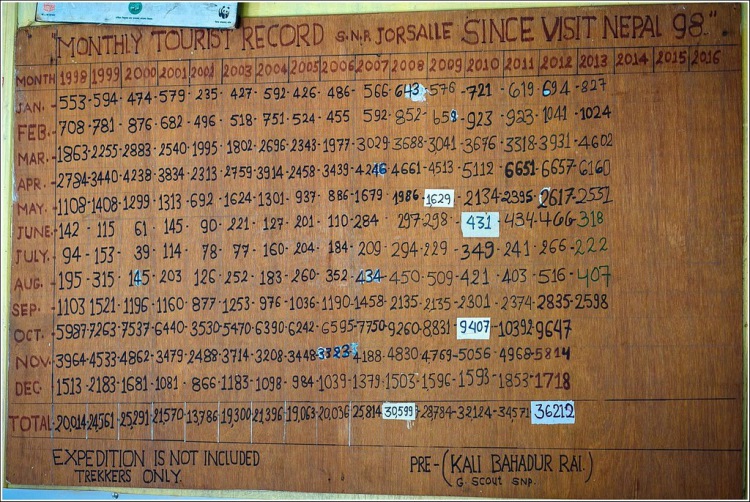 WWF
MONTHLY TOURIST RECORD S.N.P. JORSALLE SINCE VISIT NEPAL 98."
MONTH 1998 1999 2000 2001 2002 2003 2004 2005 2006 2007 2008 2009 2010 2011 2012 2013 2014 2015 2016
JAN. 553 594 474 579 235 427 592 426 486 566 643 576 721 619 694 827
FEB. 708 781 876 682 496 518 751 524 455 592 852 659 923 923 1041 1024
MAR. 1863 2255 2883 2540 1995 1802 2696 2343 1977 3029 3688 3041 3676 3318 3931 4602
APR. 2784 3440 4238 3834 2313 2759 3914 2458 3439 4246 4661 4513 5112 6651 6657 6160
MAY. 1108 1408 1299 1313 692 1624 1301 937 886 1679 1986 1629 2134 2395 2617 2551
JUNE. 142 115 61 145 90 221 127 201 110 284 297 298 431 434 466 318
JULY. 94 153 39 114 78 77 160 204 184 209 294 229 349 241 266 222
AUG. 195 315 145 203 126 252 183 260 352 434 450 509 421 403 516 407
SEP. 1103 1521 1196 1160 877 1253 976 1036 1190 1458 2135 2135 2301 2374 2835 2598
OCT. 5987 7263 7537 6440 3530 5470 6390 6242 6595 7750 9260 8831 9407 10392 9647
NOV. 3964 4533 4862 3479 2488 3714 3208 3448 3323 4188 4830 4769 5056 4968 5814
DEC. 1513 2183 1681 1081 866 1183 1098 984 1039 1379 1503 1596 1593 1853 1718
TOTAL 20,014 24,561 25,291 21,570 13,786 19,300 21,396 19,063 20,036 25,814 30,599 28,784 32,124 34,571 36212
EXPEDITION IS NOT INCLUDED
TREKKERS ONLY.
PRE-(KALI BAHADUR RAI.)
G. SCOUT SNP.